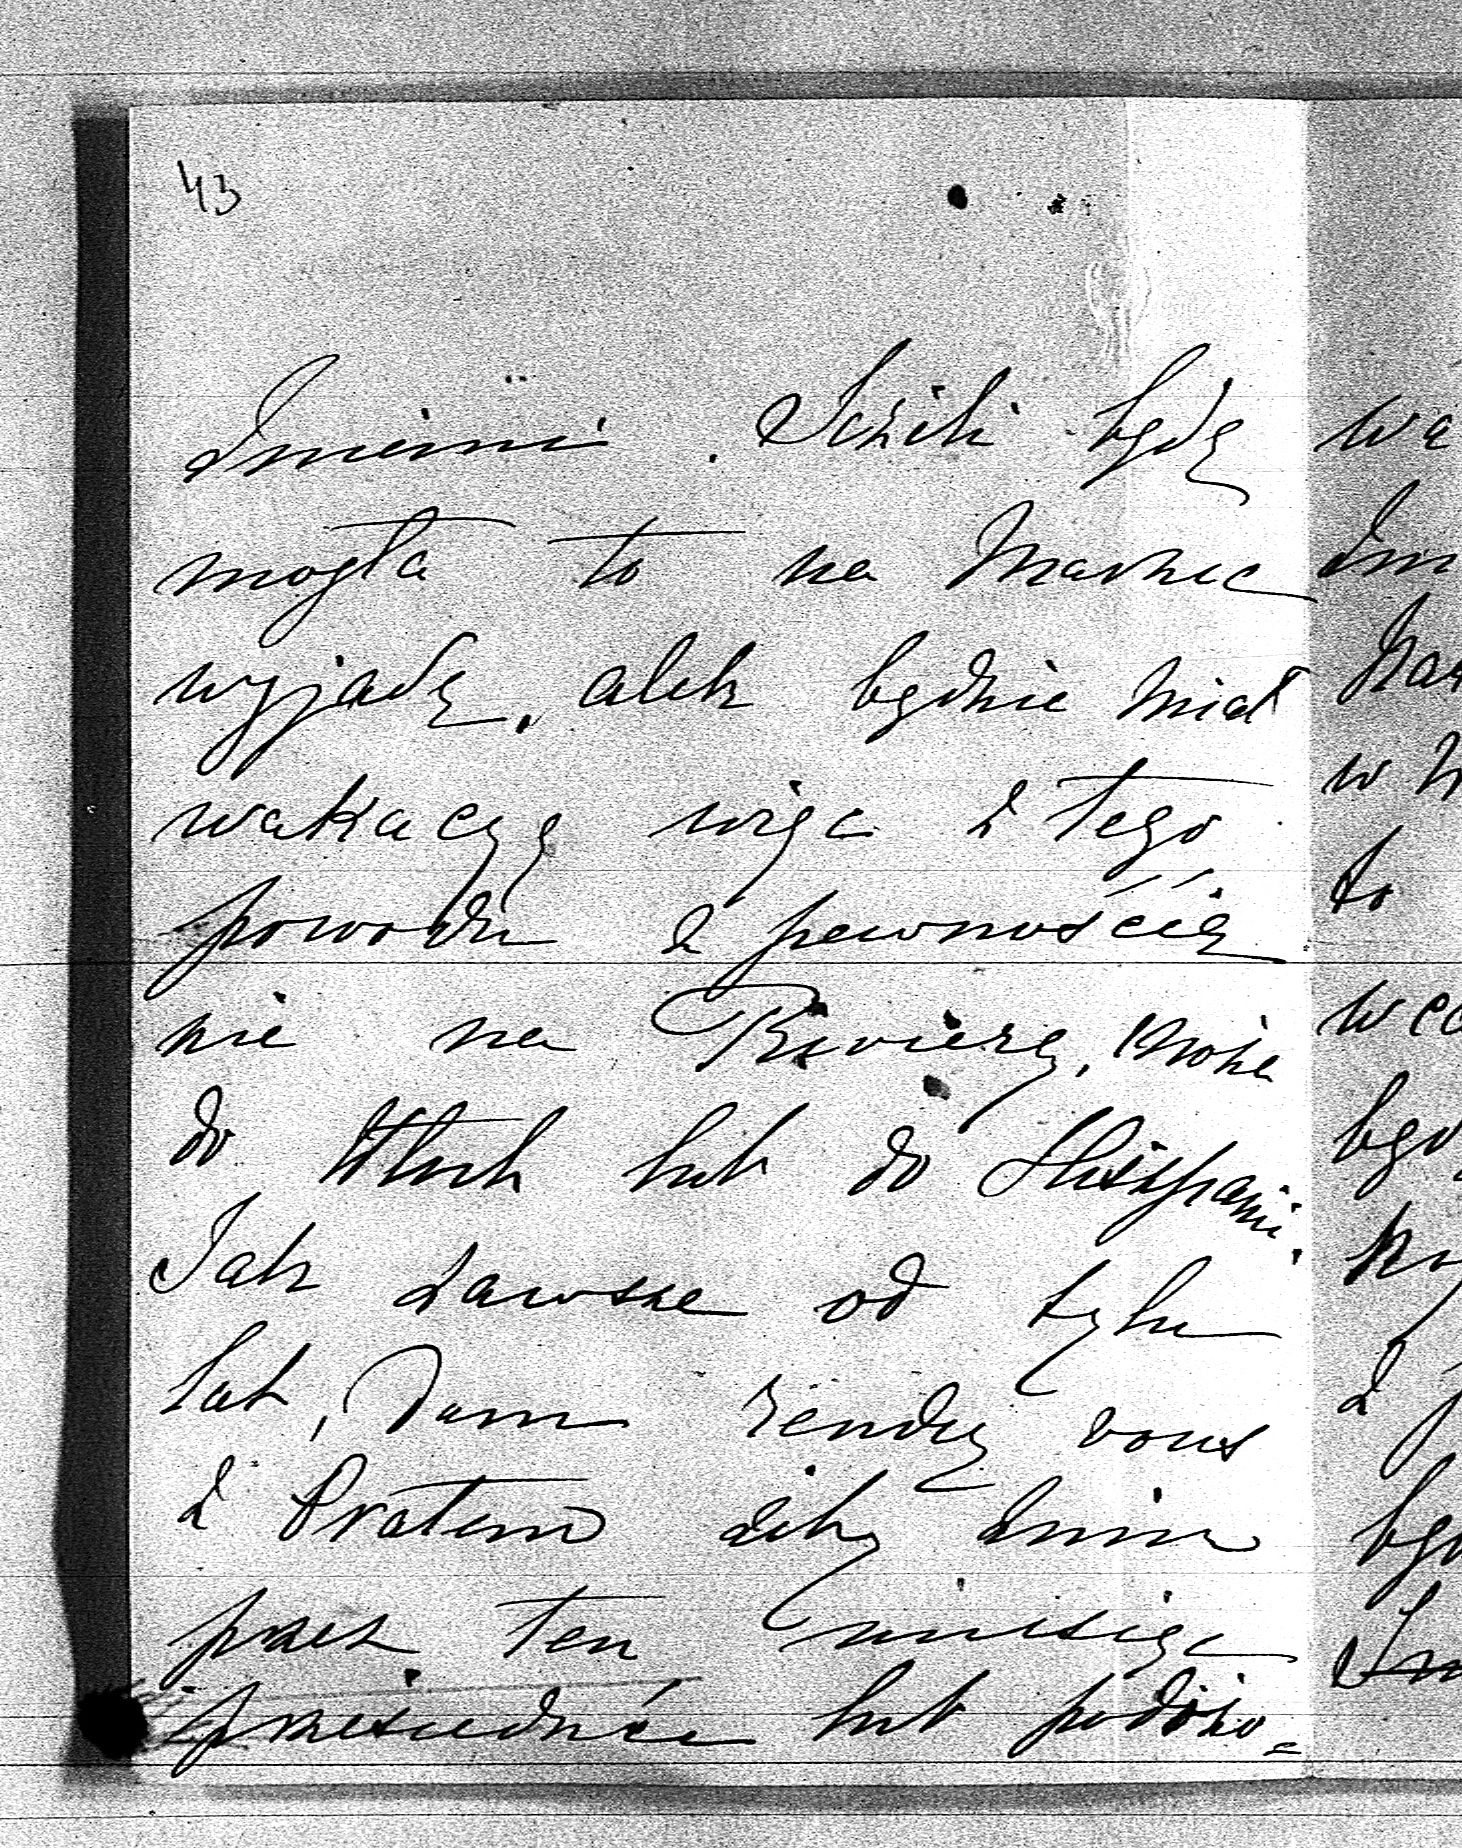 43
Imieniu. Jeżeli będę
mogła to na Marzec
wyjadę, alek będzie miał
wakacyę więc z tego
powodu z pewnością
nie na Rivierę, może
do Włoch lub do Hiszpanii.
Jak zawsze od tylu
lat, dam rendez vous
z Bratem żeby zemną
przez ten miesiąc
przesiedzieć lub podró=
wę
to
w
z